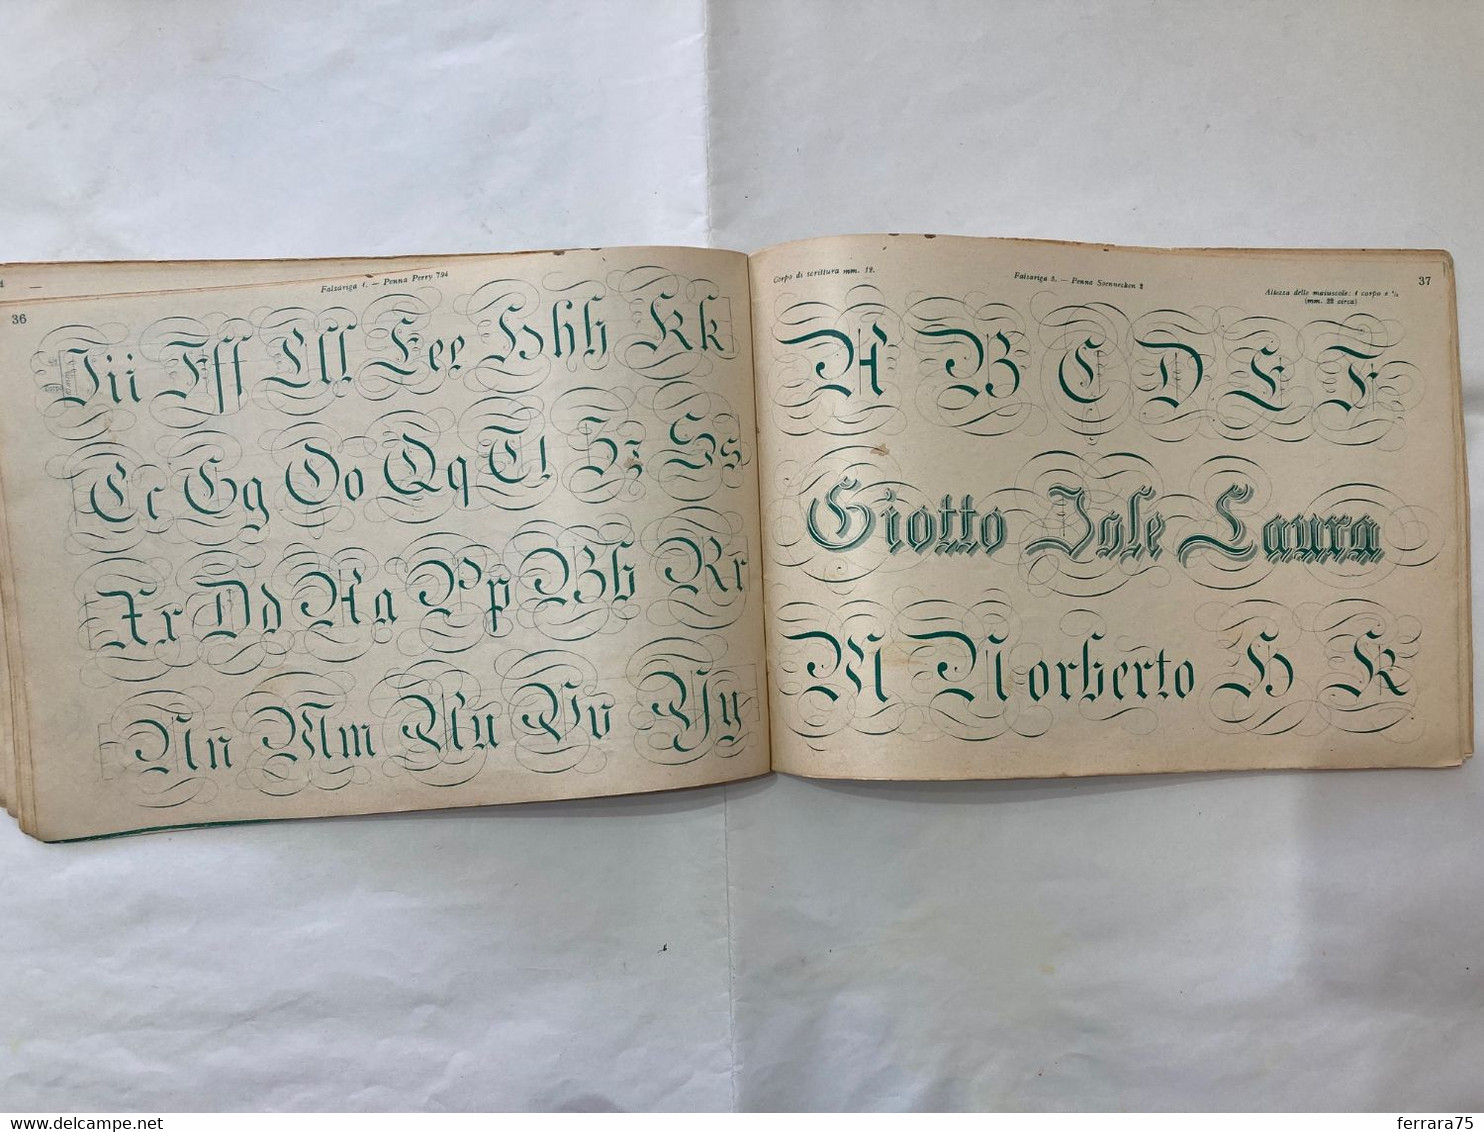 36
Falsariga 4. — Penna Perry 794
Iii Fff Lll Eee Hhh Kk
Cc Gg Oo Qq Tt Zz Ss
Xx Dd Aa Pp Bb Rr
Nn Mm Uu Vv Yy
Corpo di scrittura mm. 12.
Falsariga 5. — Penna Soennecken 2
Altezza delle maiuscole: 1 corpo e
(mm. 22 circa)
37
A B C D E F
Giotto Iole Laura
M Norberto H K
ferrara75